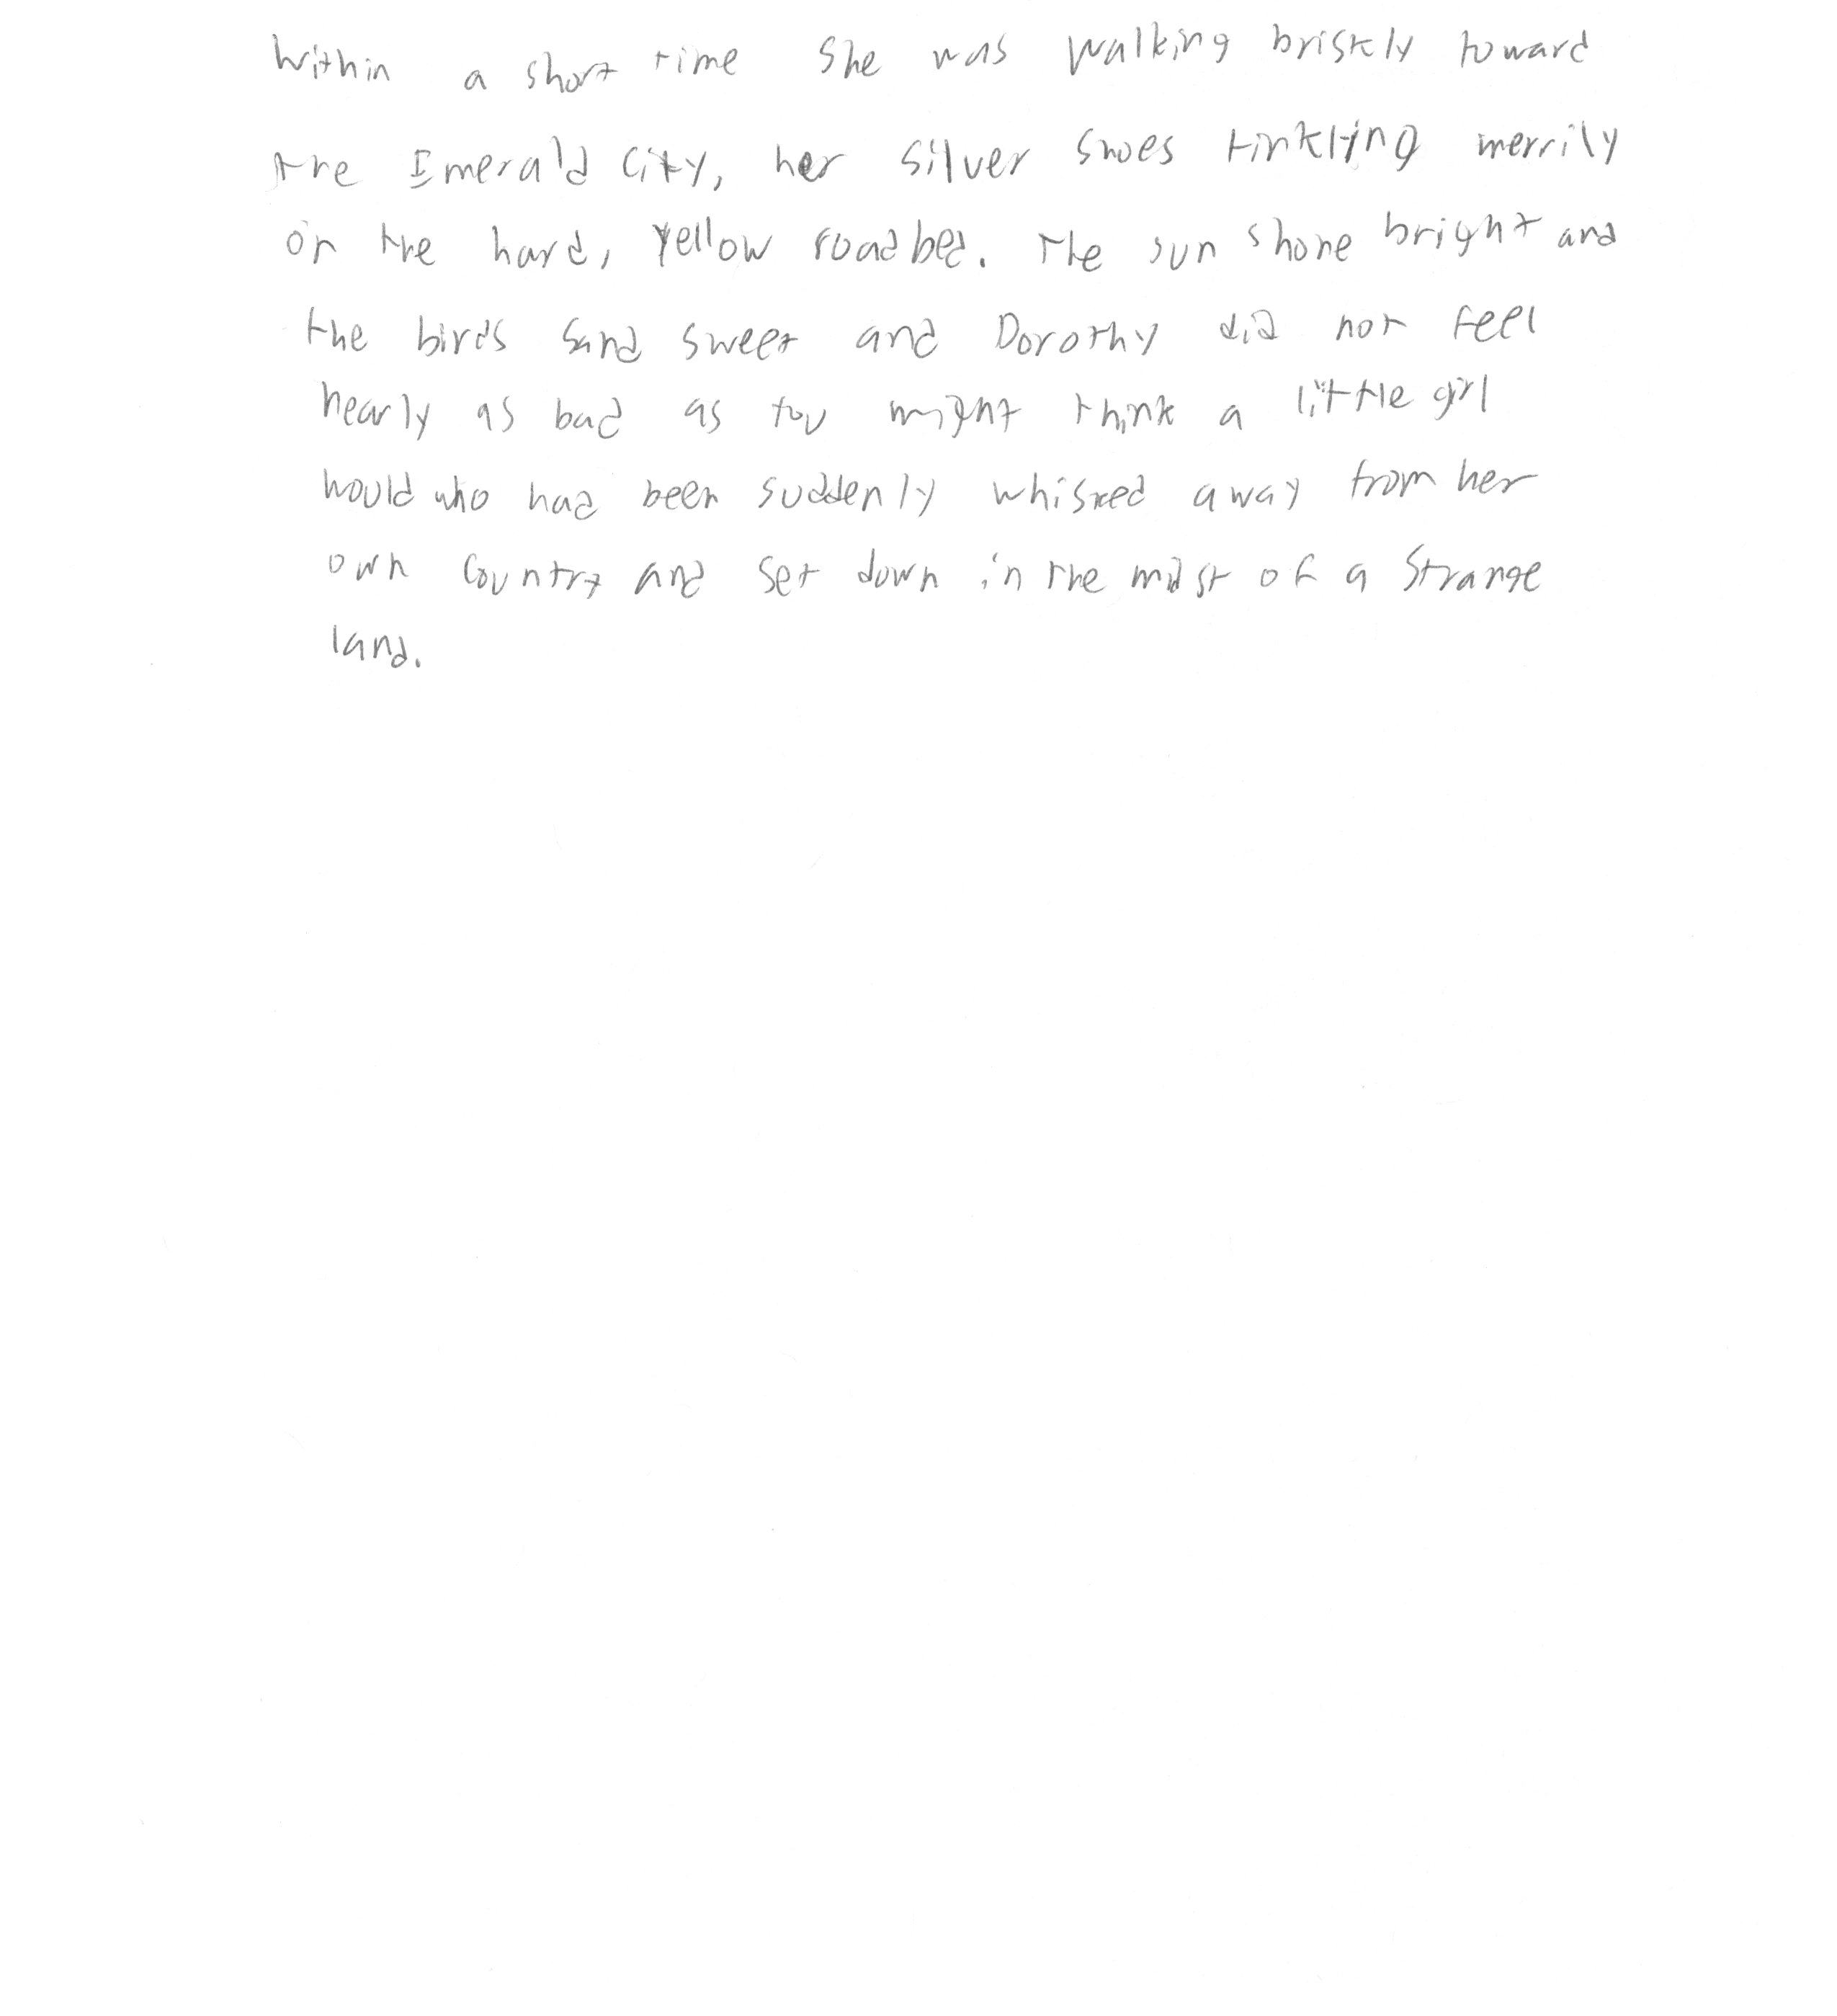 Within a short time she was walking briskly toward
the Emerald City, her silver shoes tinkling merrily
on the hard, yellow roadbed. The sun shone bright and
the birds sand sweet and Dorothy did not feel
nearly as bad as you might think a little girl
would who had been suddenly whisked away from her
own country and set down in the midst of a strange
land.